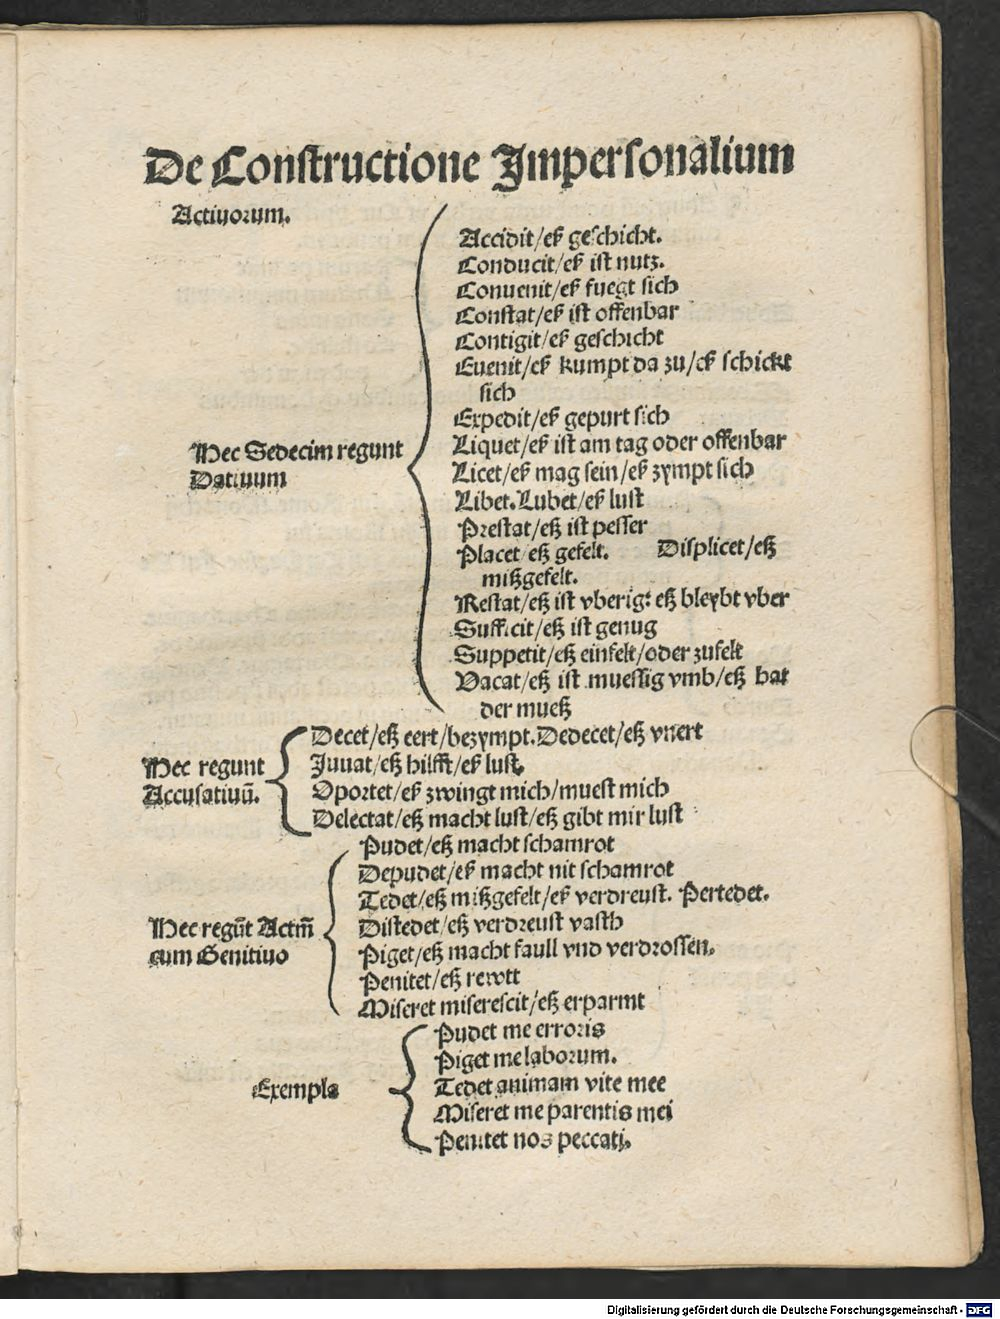 De Constructione Impersonalium
Actiuorum.
Hec Sedecim regunt
Datiuum
Accidit/eß geschicht.
Conducit/eß ist nutz.
Conuenit/eß fuegt sich
Constat/eß ist offenbar
Contigit/eß geschicht
Euenit/eß kumpt da zu/eß schickt
sich
Expedit/eß gepurt sich
Liquet/eß ist am tag oder offenbar
Licet/eß mag sein/eß zympt sich
Libet. Lubet/eß lust
Prestat/eß ist pesser
Placet/eß gefelt. Displicet/eß
mißgefelt.
Restat/eß ist vberig: eß bleybt vber
Sufficit/eß ist genug
Suppetit/eß einfelt/oder zufelt
Vacat/eß ist muessig vmb/eß hat
der mueß
Hec regunt
Accusatiuū.
Decet/eß eert/bezympt. Dedecet/eß vnert
Juuat/eß hilfft/eß lust.
Oportet/eß zwingt mich/muest mich
Delectat/eß macht lust/eß gibt mir lust
Hec regūt Actm̄
cum Genitiuo
Pudet/eß macht schamrot
Depudet/eß macht nit schamrot
Tedet/eß mißgefelt/eß verdreust. Pertedet.
Distedet/eß verdreust vasth
Piget/eß macht faull vnd verdrossen.
Penitet/eß rewtt
Miseret miserescit/eß erparmt
Exempla
Pudet me erroris
Piget me laborum.
Tedet animam vite mee
Miseret me parentis mei
Penitet nos peccati.
Digitalisierung gefördert durch die Deutsche Forschungsgemeinschaft - DFG